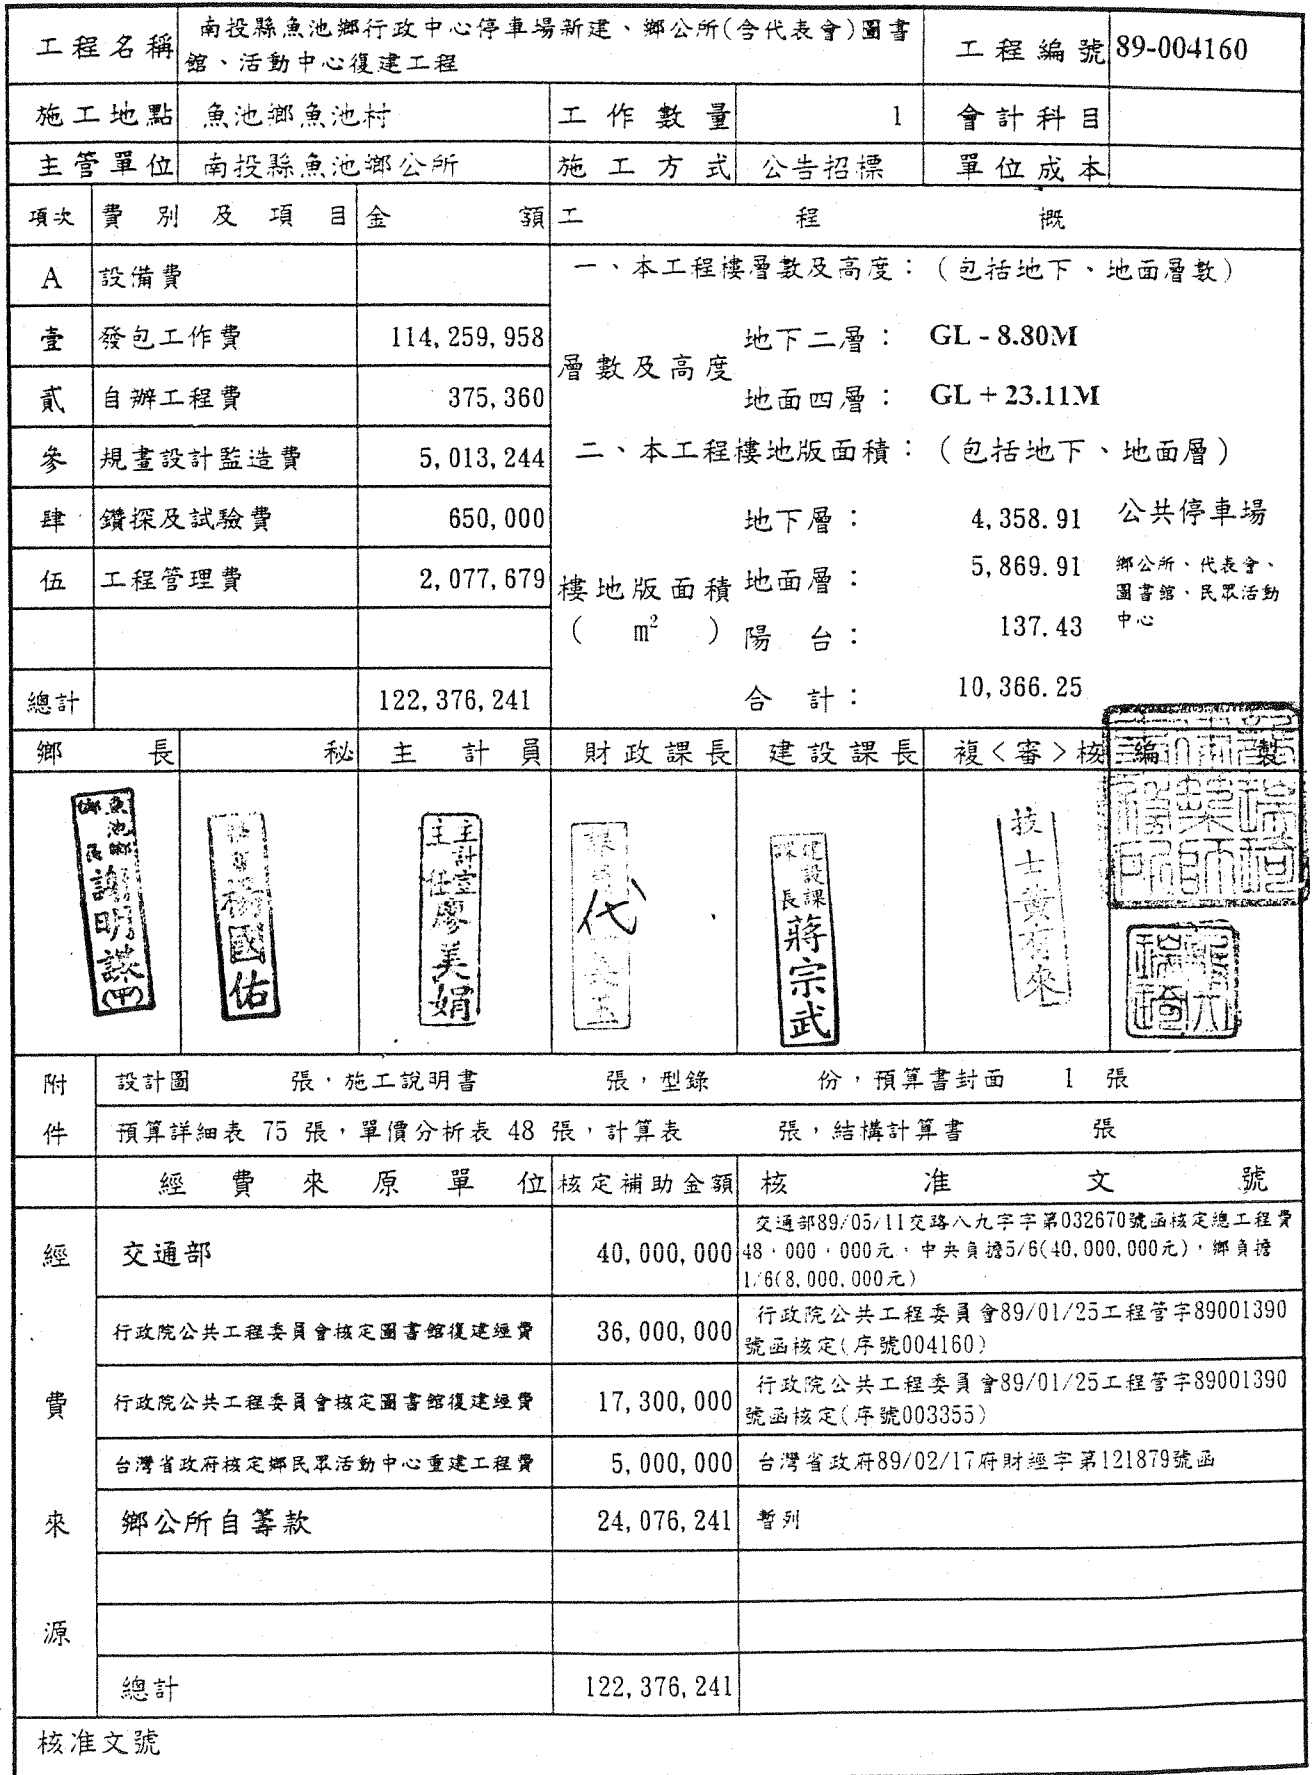 工程名稱 南投縣魚池鄉行政中心停車場新建、鄉公所(含代表會)圖書 工程編號 89-004160
館、活動中心復建工程
施工地點 魚池鄉魚池村 工作數量 1 會計科目
主管單位 南投縣魚池鄉公所 施工方式 公告招標 單位成本
項次 費別及項目 金額 工程概
A 設備費
壹 發包工作費 114,259,958
貳 自辦工程費 375,360
參 規畫設計監造費 5,013,244
肆 鑽探及試驗費 650,000
伍 工程管理費 2,077,679
總計 122,376,241
一、本工程樓層數及高度：（包括地下、地面層數）
層數及高度
地下二層： GL - 8.80M
地面四層： GL + 23.11M
二、本工程樓地版面積：（包括地下、地面層）
樓地版面積
( m² )
地下層： 4,358.91 公共停車場
地面層： 5,869.91 鄉公所、代表會、
圖書館、民眾活動
中心
陽台： 137.43
合計： 10,366.25
鄉長 秘 主計員 財政課長 建設課長 複<審>核 編製
魚池鄉
鄉長
謝明謀
楊國佑
主計室
主任
廖美娟
代
建設課
課長
蔣宗武
技士黃有來
附件
設計圖 張，施工說明書 張，型錄 份，預算書封面 1 張
預算詳細表 75 張，單價分析表 48 張，計算表 張，結構計算書 張
經費來源
經費來原單位 核定補助金額 核准文號
交通部 40,000,000 交通部89/05/11交路八九字字第032670號函核定總工程費
48，000，000元，中央負擔5/6(40,000,000元)，鄉負擔
1/6(8,000,000元)
行政院公共工程委員會核定圖書館復建經費 36,000,000 行政院公共工程委員會89/01/25工程管字89001390
號函核定(序號004160)
行政院公共工程委員會核定圖書館復建經費 17,300,000 行政院公共工程委員會89/01/25工程管字89001390
號函核定(序號003355)
台灣省政府核定鄉民眾活動中心重建工程費 5,000,000 台灣省政府89/02/17府財經字第121879號函
鄉公所自籌款 24,076,241 暫列
總計 122,376,241
核准文號